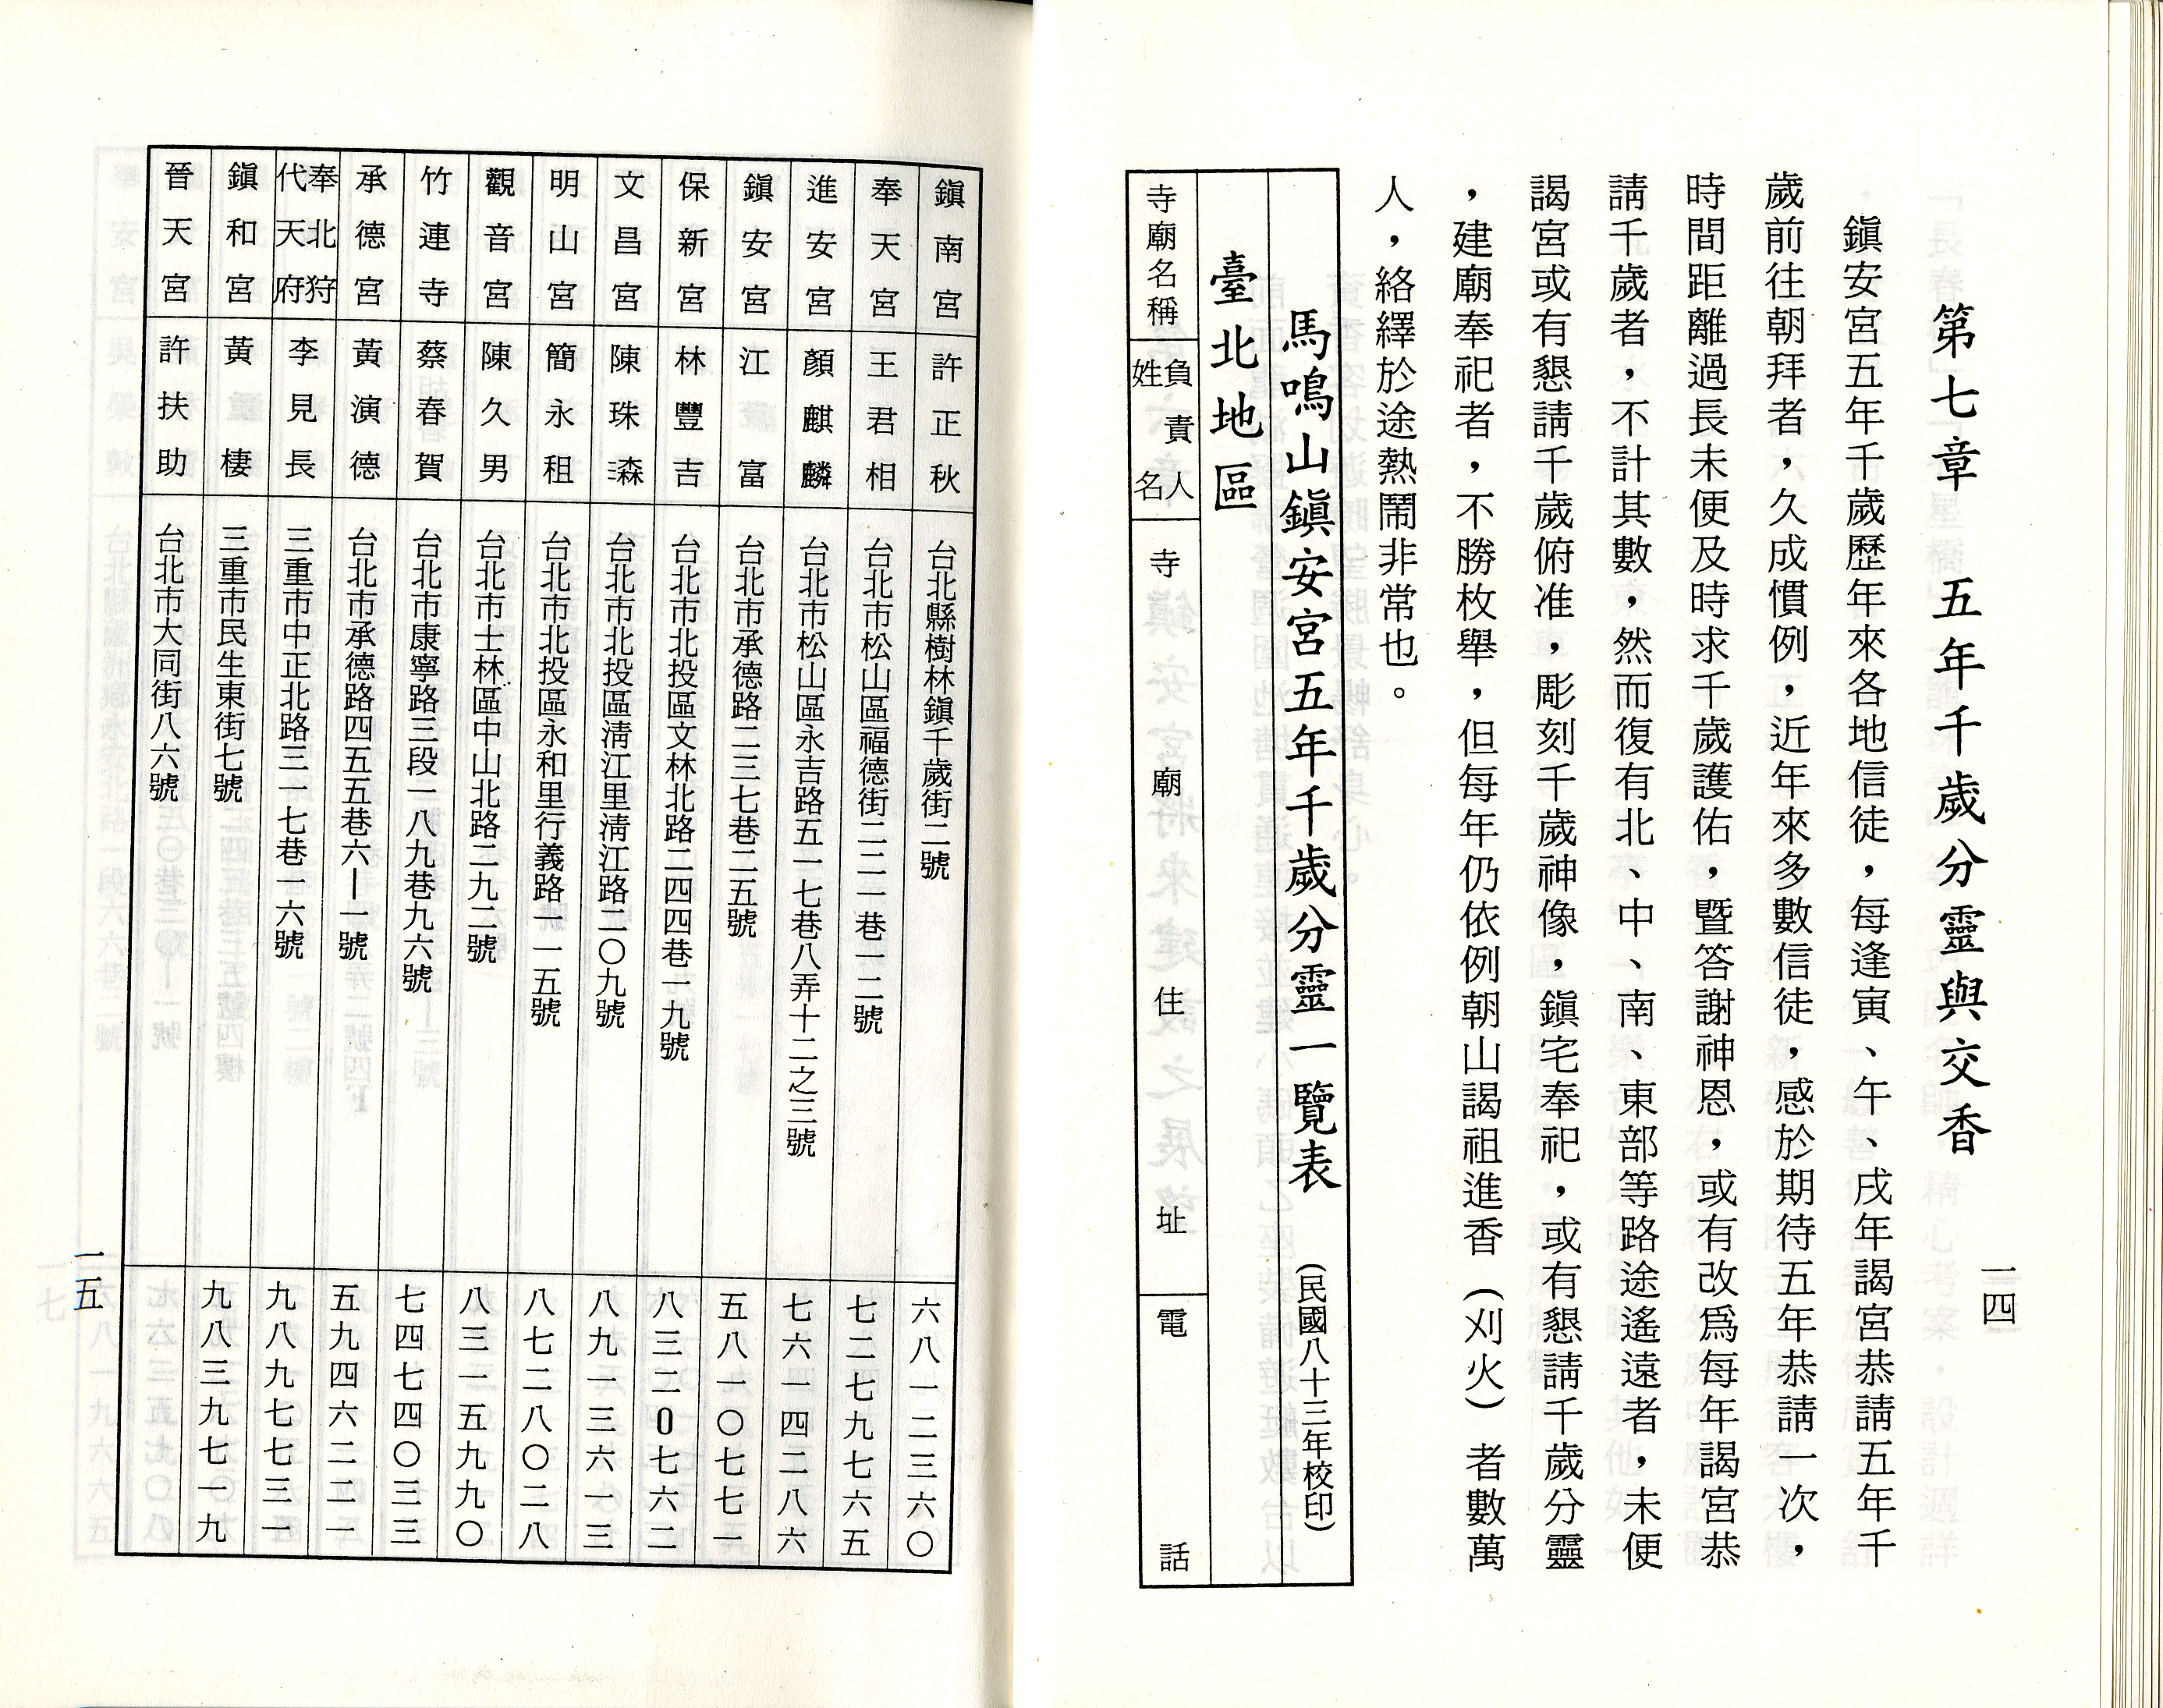 一四
第七章　五年千歲分靈與交香
鎮安宮五年千歲歷年來各地信徒，每逢寅、午、戌年謁宮恭請五年千
歲前往朝拜者，久成慣例，近年來多數信徒，感於期待五年恭請一次，
時間距離過長未便及時求千歲護佑，暨答謝神恩，或有改為每年謁宮恭
請千歲者，不計其數，然而復有北、中、南、東部等路途遙遠者，未便
謁宮或有懇請千歲俯准，彫刻千歲神像，鎮宅奉祀，或有懇請千歲分靈
，建廟奉祀者，不勝枚舉，但每年仍依例朝山謁祖進香（刈火）者數萬
人，絡繹於途熱鬧非常也。
馬鳴山鎮安宮五年千歲分靈一覽表（民國八十三年校印）
臺北地區
寺廟名稱　負責人姓名　寺廟住址　電話
鎮南宮　許正秋　台北縣樹林鎮千歲街二號　六八一二三六〇
奉天宮　王君相　台北市松山區福德街二二一巷一二號　七二七九七六五
進安宮　顏麒麟　台北市松山區永吉路五一七巷八弄十二之三號　七六一四二八六
鎮安宮　江富　台北市承德路二三七巷二五號　五八一〇七七一
保新宮　林豐吉　台北市北投區文林北路二四四巷一九號　八三二0七六二
文昌宮　陳珠森　台北市北投區清江里清江路二〇九號　八九一三六一三
明山宮　簡永租　台北市北投區永和里行義路一一五號　八七二八〇二八
觀音宮　陳久男　台北市士林區中山北路二九二號　八三一五九九〇
竹連寺　蔡春賀　台北市康寧路三段一八九巷九六號　七四七四〇三三
承德宮　黃演德　台北市承德路四五五巷六－一號　五九四六二二一
奉北狩代天府　李見長　三重市中正北路三一七巷一六號　九八九七七三一
鎮和宮　黃棲　三重市民生東街七號　九八三九七一九
晉天宮　許扶助　台北市大同街八六號
一五